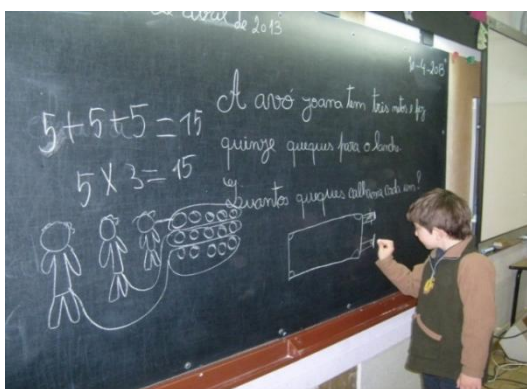 de Abril de 2013
11-4-2013
5+5+5=15
5X3=15
A avó Joana tem três netos e fez
quinze queques para o lanche.
Quantos queques calham a cada um?